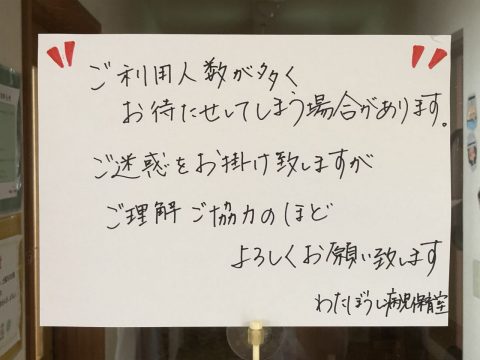 ご利用人数が多く
お待たせしてしまう場合があります。
ご迷惑をお掛け致しますが
ご理解ご協力のほど
よろしくお願い致します
わたぼうし病児保育室